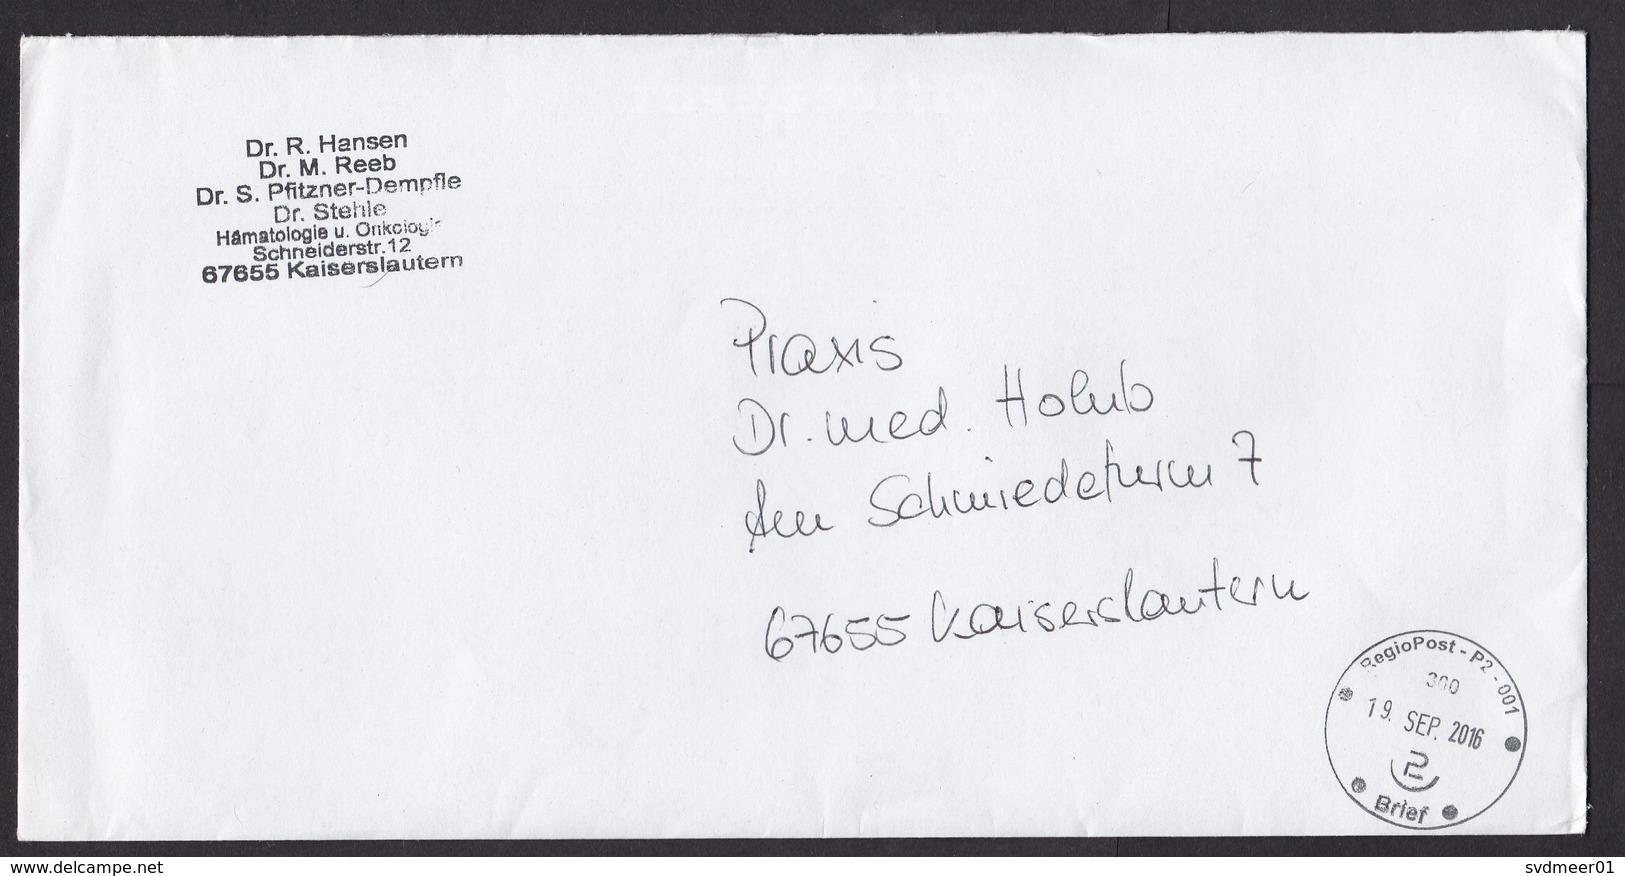 Dr. R. Hansen
Dr. M. Reeb
Dr. S. Pfitzner-Dempfle
Dr. Stehle
Hämatologie u. Onkologie
Schneiderstr.12
67655 Kaiserslautern
Praxis
Dr. med. Holub
Am Schmiedeturm 7
67655 Kaiserslautern
RegioPost - P2 - 001
300
19. SEP. 2016
Brief
delcampe.net
svdmeer01